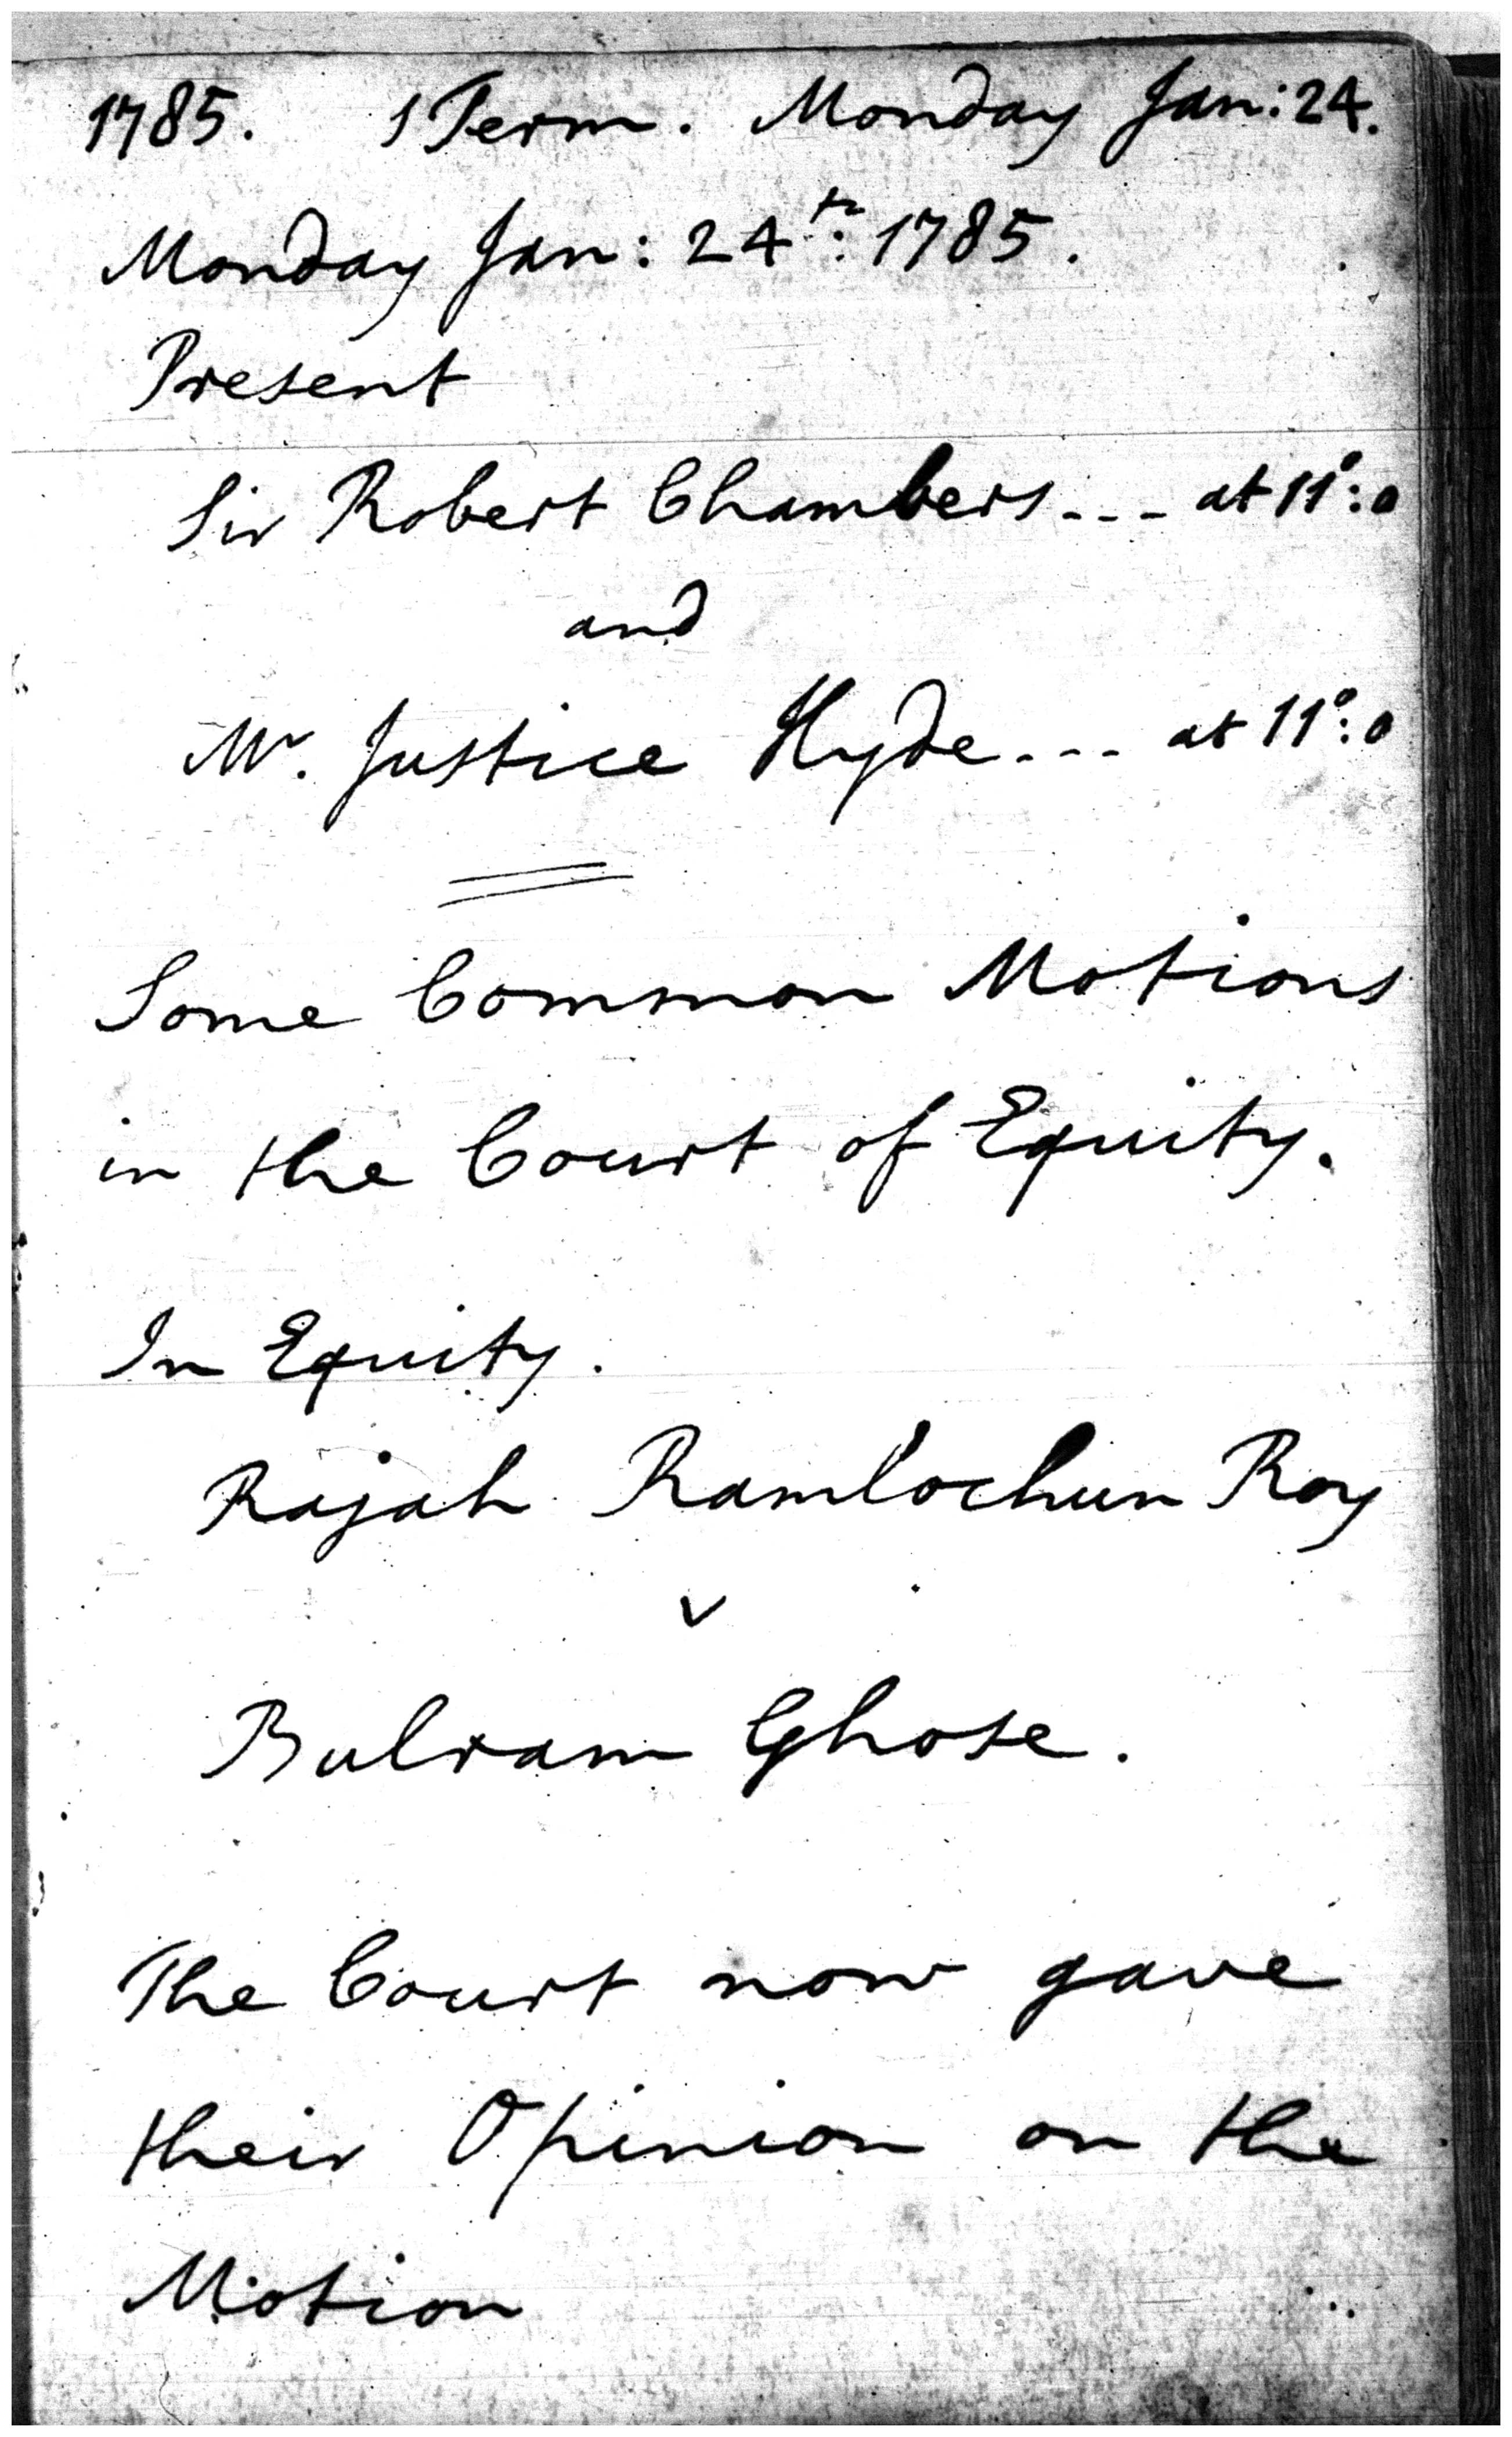 1785. 1 Term. Monday Jan: 24.
Monday Jan: 24th: 1785.
Present
Sir Robert Chambers --- at 11°:0
and
Mr. Justice Hyde --- at 11°:0
Some Common Motions
in the Court of Equity.
In Equity.
Rajah Ramlochun Roy
v
Bulram Ghose.
The Court now gave
their Opinion on the
Motion